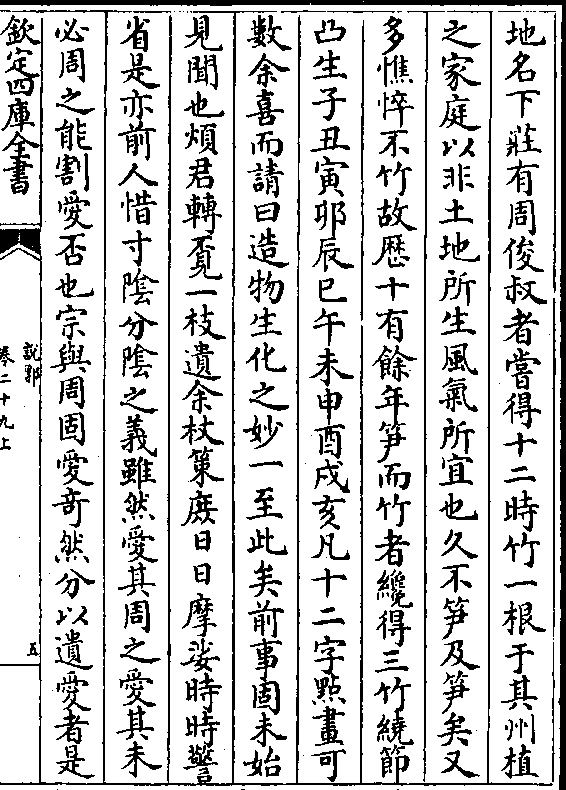 地名下莊有周俊叔者嘗得十二時竹一根于其州植
之家庭以非土地所生風氣所宜也久不笋及笋矣又
多憔悴不竹故歴十有餘年笋而竹者纔得三竹繞節
凸生子丑寅卯辰巳午未申酉戌亥凡十二字㸃畫可
數余喜而請曰造物生化之妙一至此矣前事固未始
見聞也煩君轉覔一枝遺余杖䇿庻日日摩娑時時警
省是亦前人惜寸隂分隂之義雖然愛其周之愛其未
必周之能割愛否也宗與周固愛竒然分以遺愛者是
欽定四庫全書
說郛
卷二十九上
五